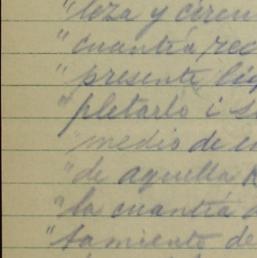 "teza y ceren
"cuantía rec
"presente, liq
"pletarlo i s
"medio de
"de aquella
"la cuantía
"tamiento de